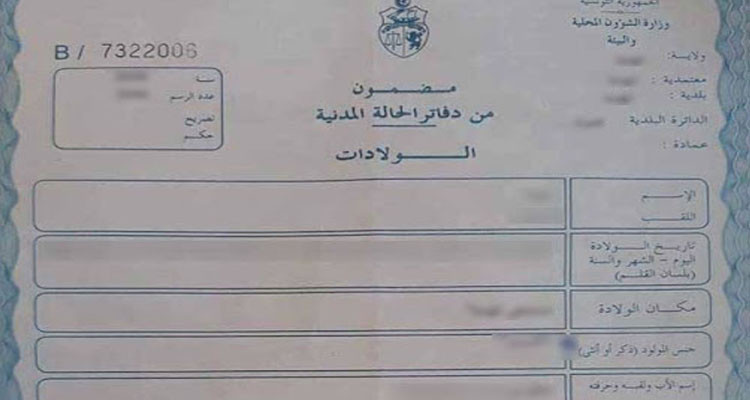 الجمهورية التونسية
وزارة الشؤون المحلية
والبيئة
ولاية :
معتمدية :
بلدية :
الدائرة البلدية :
عمادة :
B / 7322006
سنة
عدد الرسم
تصريح
حكم
مضمون
من دفاتر الحالة المدنية
الولادات
الإسم
اللقب
تاريخ الولادة
اليوم - الشهر والسنة
(بلسان القلم)
مكان الولادة
جنس المولود (ذكر أو أنثى)
إسم الأب ولقبه وحرفته